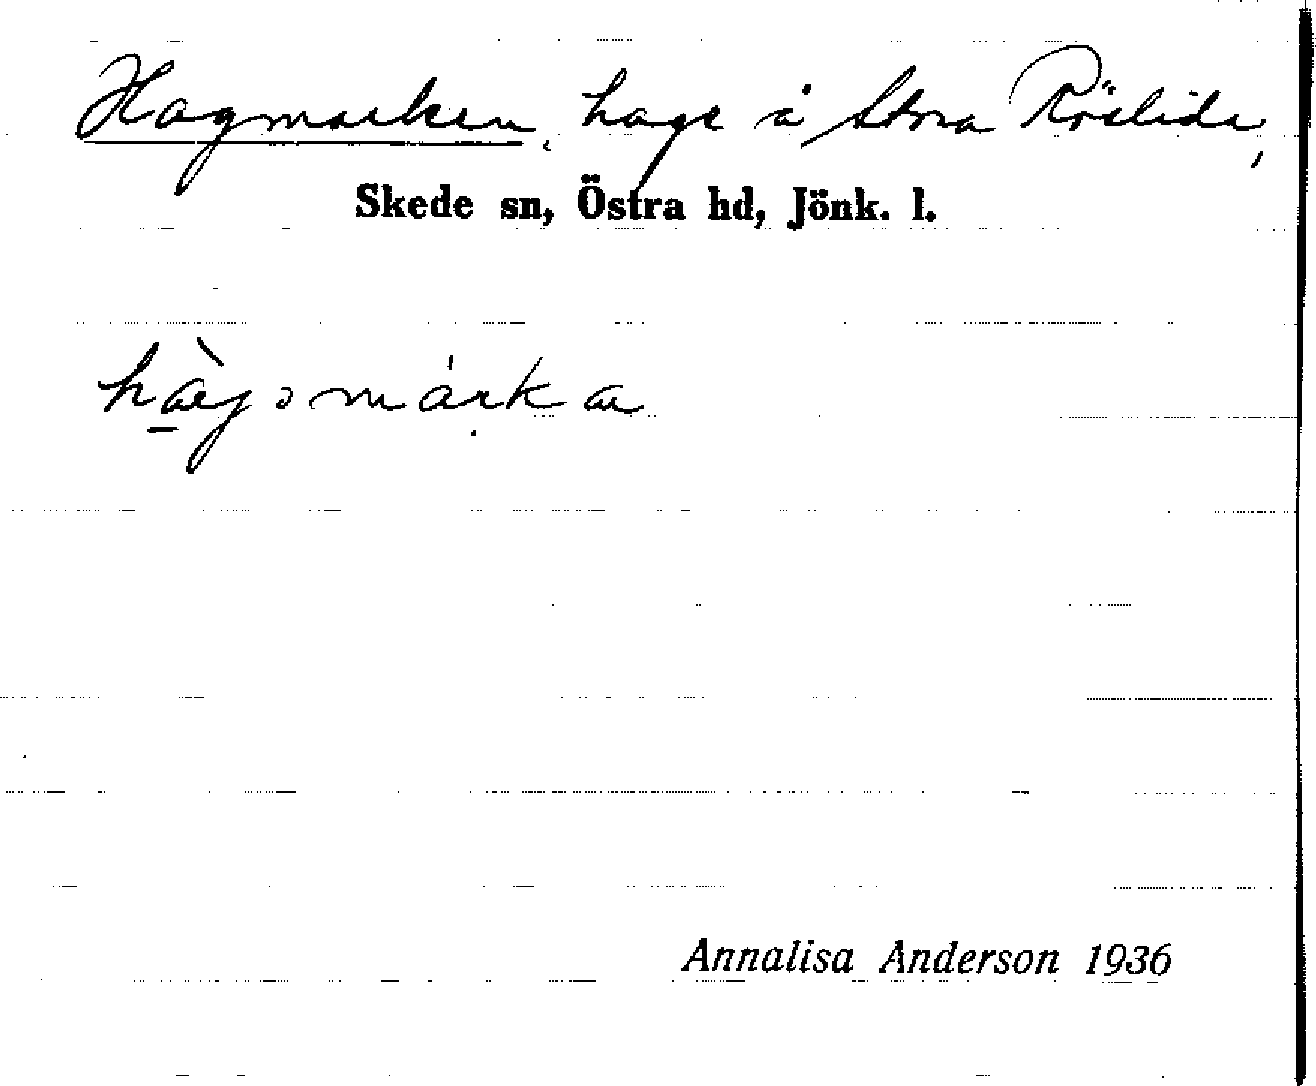 Hagmarken, hage å Stora Röslida,
Skede sn, Östra hd, Jönk. l.
Annalisa Anderson 1936